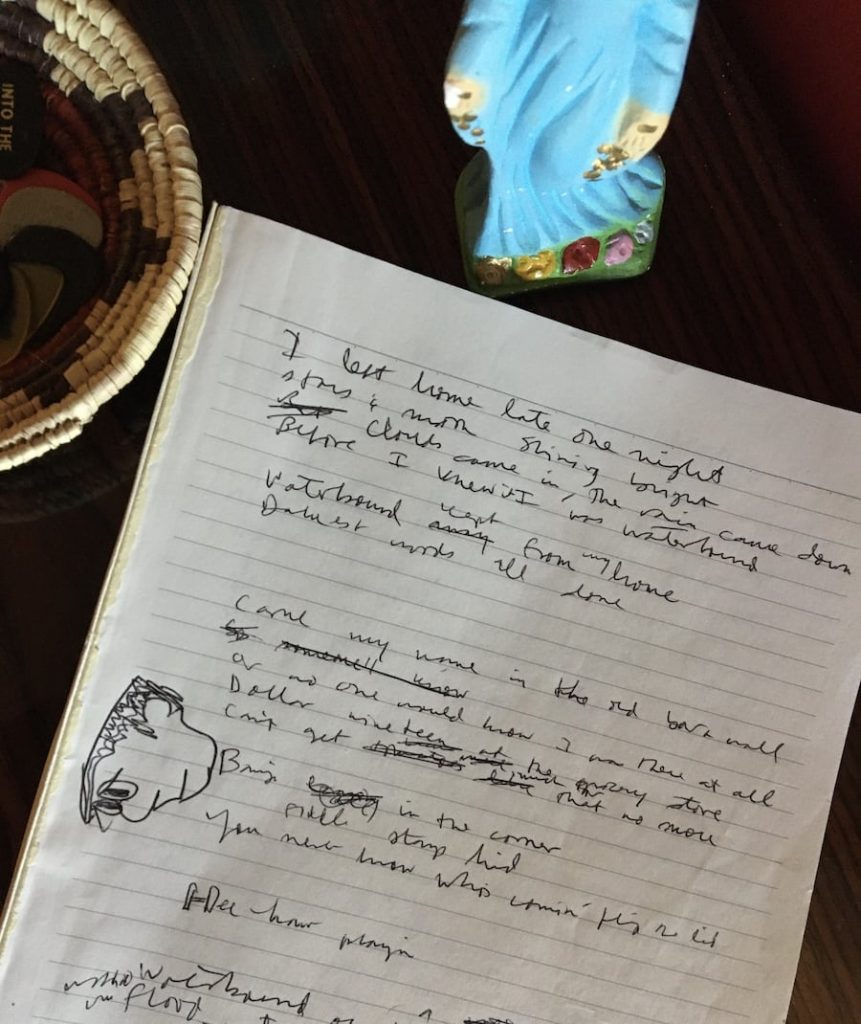 INTO THE
I left home late one night
stars & moon shining bright
Clouds came in, the rain came down
Before I knew it I was waterbound
Waterbound kept from my home
Darkest words all done
Carve my name in the old barn wall
or no one would know I was there at all
Dollar nineteen at the grocery store
Can't get that no more
in the corner
fiddle stays hid
You never know who's comin'
hour playin
Waterbound
flood